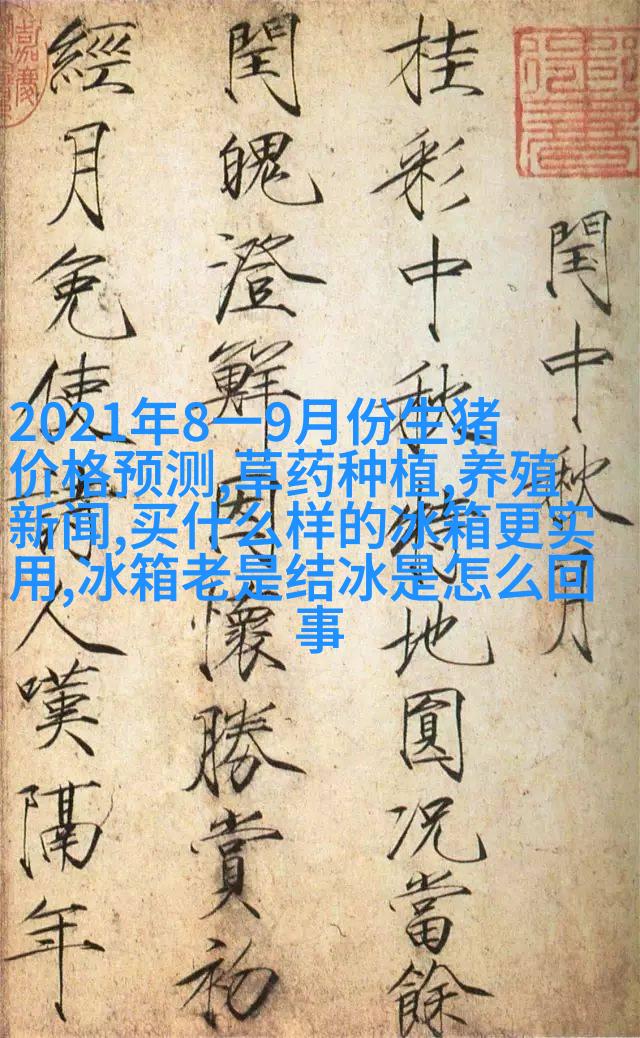 閏中秋月
桂彩中秋特地圓況當餘
閏魄澄鮮因懷勝賞初
經月免使詩人嘆隔年
2021年8一9月份生猪
价格预测,草药种植,养殖
新闻,买什么样的冰箱更实
用,冰箱老是结冰是怎么回
事